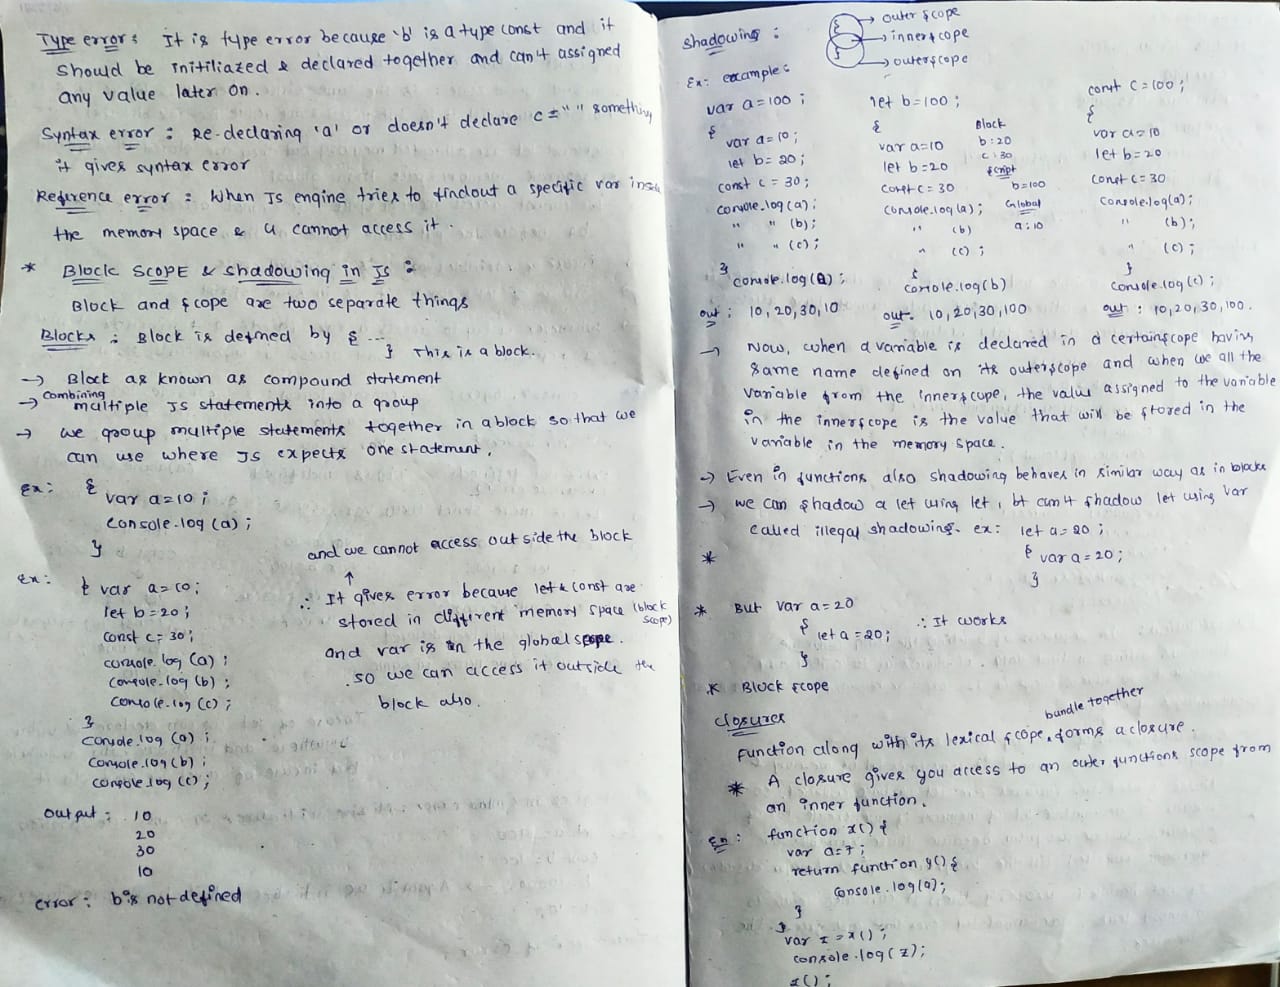 Type error : It is type error because 'b' is a type const and it
should be initiliazed & declared together and can't assigned
any value later on.
Syntax error : Re-declaring 'a' or doesn't declare c = " " something
it gives syntax error
Reference error : When Js engine tries to findout a specific var inside
the memory space & u cannot access it.
* Block SCOPE & shadowing in Js :
Block and scope are two separate things
Blocks : Block is defined by { ---
} This is a block.
→ Block as known as compound statement
→ combining multiple Js statements into a group
→ we group multiple statements together in a block so that we
can use where Js expects one statement.
Ex : {
var a=10 ;
console.log (a) ;
}
and we cannot access out side the block
↑
Ex : { var a=10;
let b=20;
const c=30;
console.log (a) ;
console.log (b) ;
console.log (c) ;
}
console.log (a) ;
console.log (b) ;
console.log (c) ;
∴ It gives error because let & const are
stored in different memory space (block scope)
and var is in the global scope.
.so we can access it outside the
block also.
output : 10
20
30
10
error : b is not defined
shadowing :
→ outer scope
→ inner scope
→ outerscope
Ex : examples
var a=100 ;
{
var a=10;
let b=20;
const c=30;
console.log(a);
" " (b);
" " (c);
}
console.log(a);
out : 10,20,30,10
let b=100;
{
var a=10
let b=20
const c=30
console.log(a);
" (b)
" (c) ;
}
console.log(b)
out : 10,20,30,100
Block
b:20
c:30
script
b=100
Global
a:10
const c=100;
{
var a=10
let b=20
const c=30
console.log(a);
" (b);
" (c);
}
console.log(c);
out : 10,20,30,100.
→ Now, when a variable is declared in a certain scope having
same name defined on its outerscope and when we all the
variable from the innerscope, the value assigned to the variable
in the innerscope is the value that will be stored in the
variable in the memory space.
→ Even in functions also shadowing behaves in similar way as in blocks
→ we can shadow a let using let, bt can't shadow let using var
called illegal shadowing. ex: let a=20 ;
* { var a=20;
}
* But var a=20
{ let a=20; ∴ It works
}
* Block scope
closures
bundle together
Function along with its lexical scope, forms a closure.
* A closure gives you access to an outer functions scope from
an inner function.
En : function x() {
var a=7;
return function y() {
console.log(a);
}
}
var z = x();
console.log(z);
z();